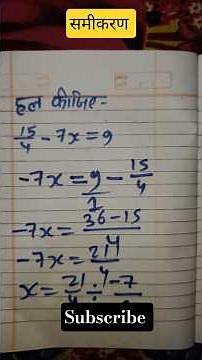 समीकरण
हल कीजिए-
15/4 - 7x = 9
-7x = 9/1 - 15/4
-7x = 36-15/4
-7x = 21/4
x = 21/4 ÷ -7
Subscribe